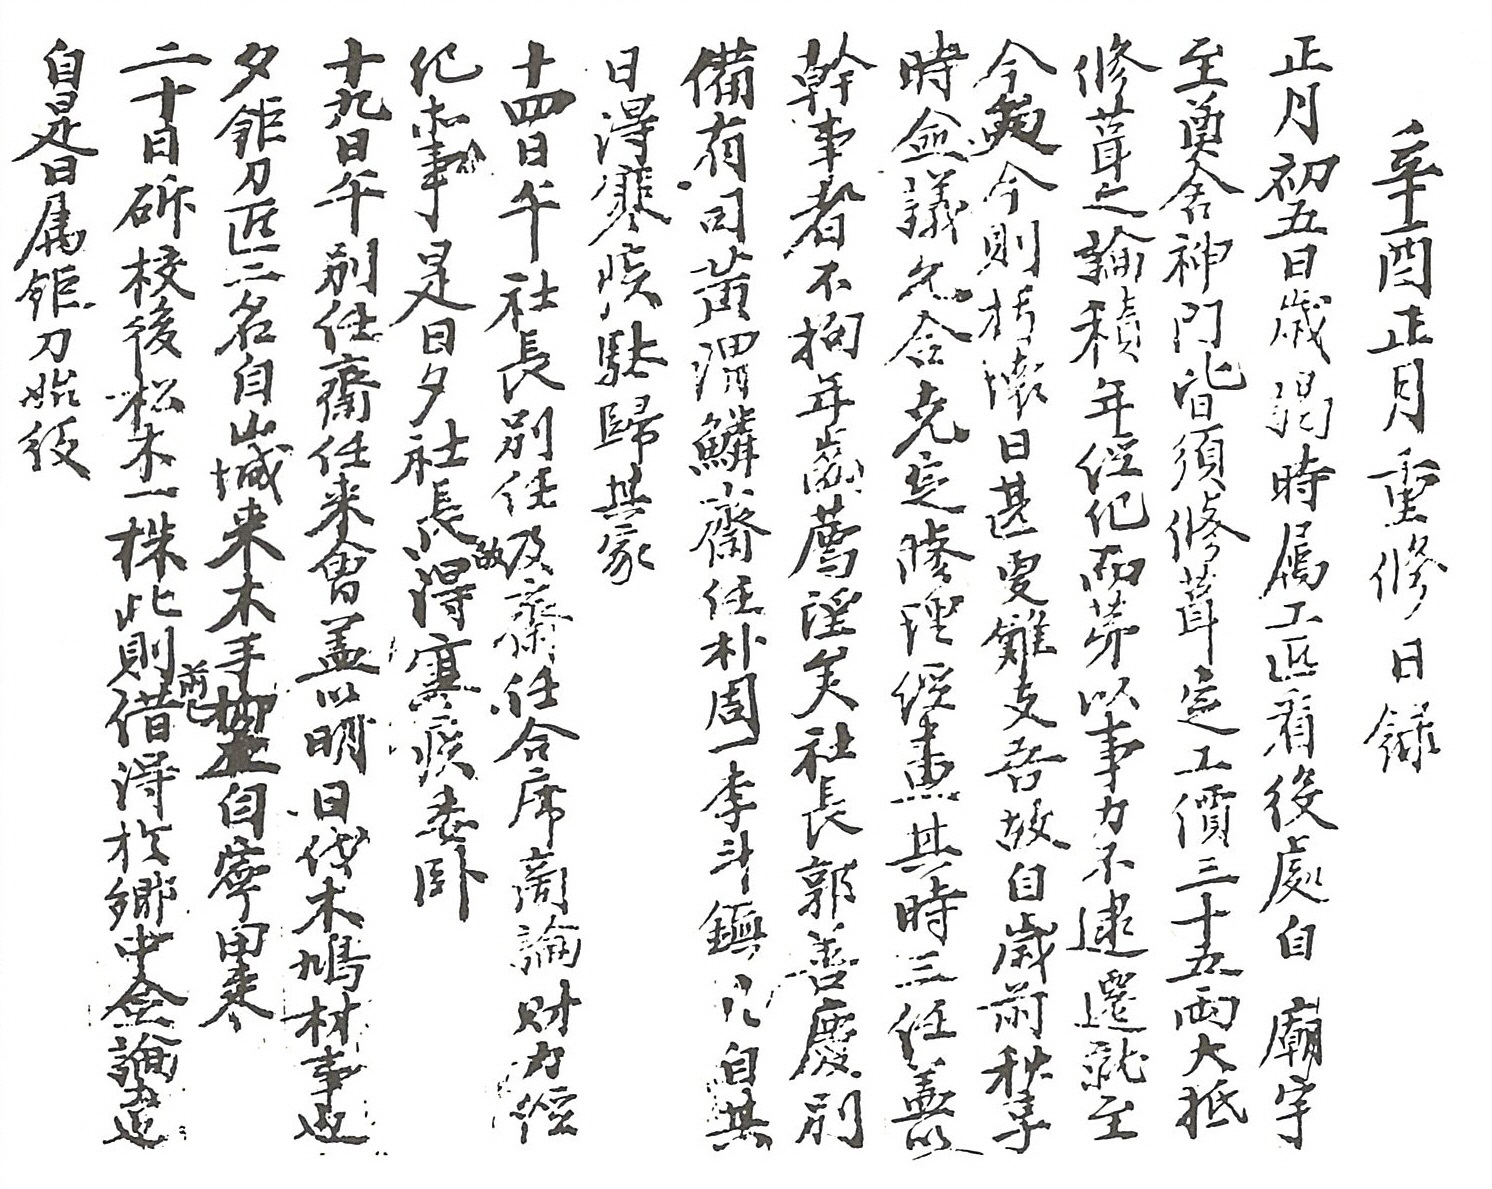 辛酉正月重修日錄
正月初五日歲謁時屬工匠看役處自 廟宇
至奠舍神門皆須修葺定工價三十五兩大抵
修葺之論積年經紀而第以事力不逮遷就至
今 今則朽滲日甚更難支吾故自歲前秋享
時僉議允合克定 理經畫其時三任蓋以
幹事者不拘年齒薦望矣社長郭善慶別
備有司黃渭鱗齋任朴周一李斗鎭 自其
日得寒疾馱歸其家
十四日午社長別任及齋任合席商論財力經
紀事是日夕社長得寒疾委臥
十九日午別任齋任來會蓋以明日伐木鳩材事也
夕鉅刀匠二名自山城來木手 自寧田來
二十日斫校後松木一株此則借得於鄕中僉論也
自是日屬鉅刀始役